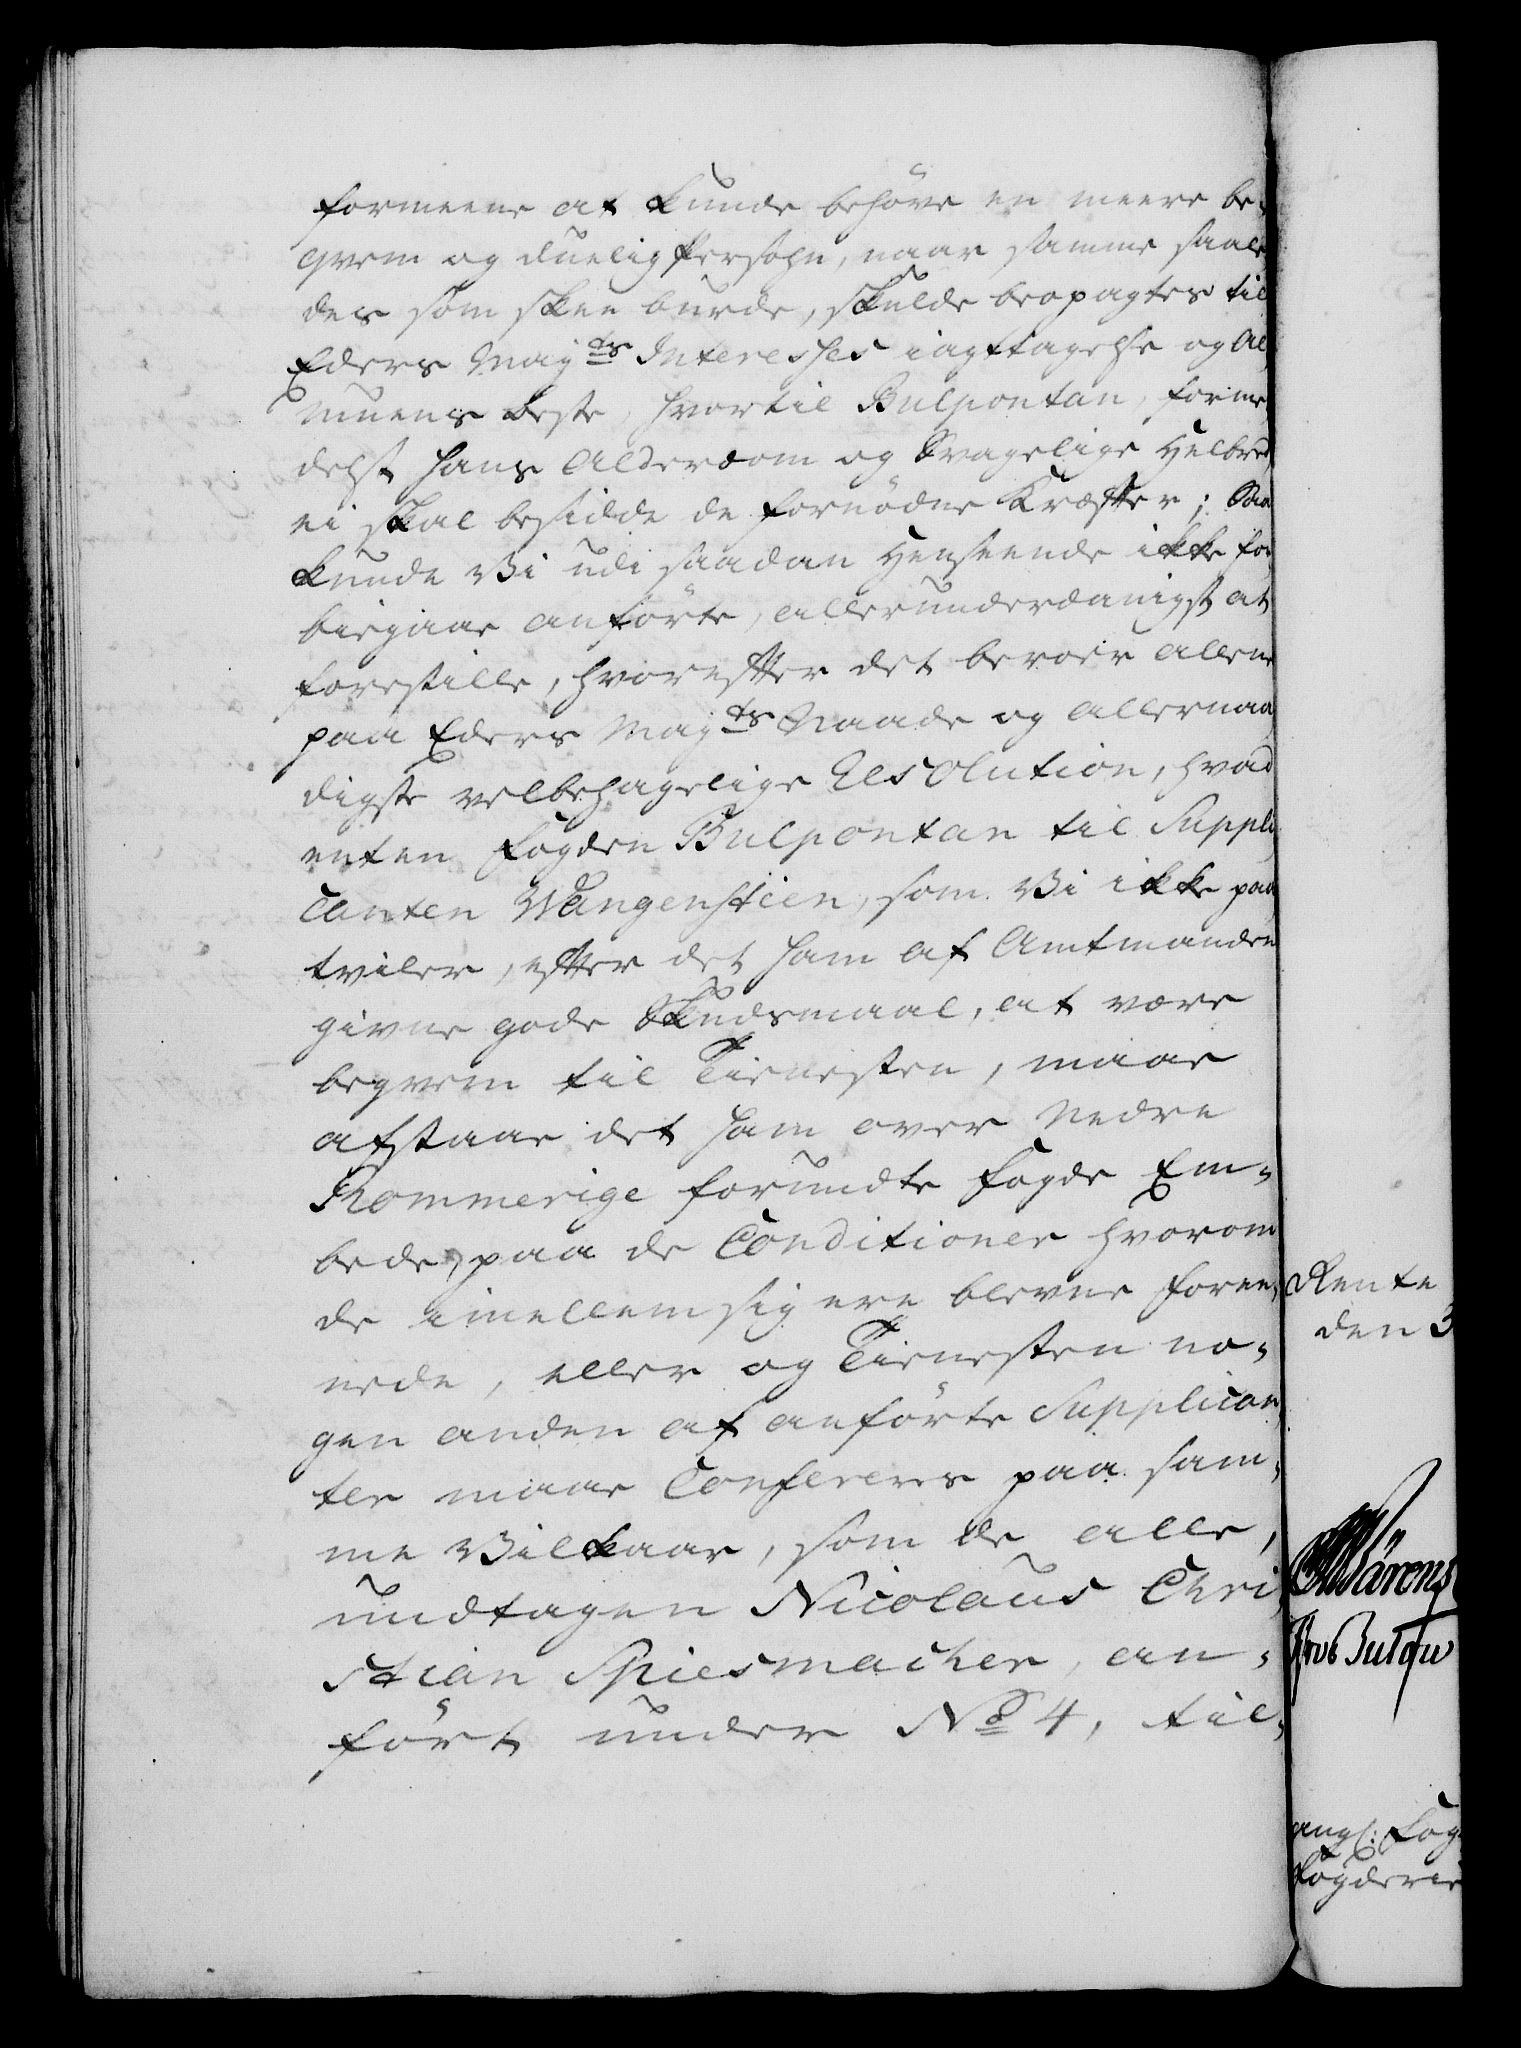 formeene at kunde behöve en meere be-
qvem og duelig Persohn, naar samme saale
des som skee burde, skulde beopagtes til
Eders Mayts Interesses iagttagelse og Al
muens beste, hvortil Bulpontan, forme
delst hans Alderdom og Svagelige Helbred
ei skal besidde de fornödne Kræfter; Saa
kunde Vi udi saadan Henseende ikke for
biegaae anförte, allerunderdanigst at
forestille, hvorefter det beroer allene
paa Eders Mayts Naade og allernaa
digste velbehagelige Resolution, hvad
enten Fogden Bulpontan til Suppli
canten Wangenstien, som Vi ikke paa
tviler, efter det ham af Amtmanden
givne gode Skudsmaal, at være
beqvem til Tienesten, maae
afstaae det ham over Nedre
Rommerige forundte Fogde Em-
bede, paa de Conditioner hvorom
de imellem sig ere blevne foree-
nede, eller og Tienesten no-
gen anden af anförte Supplican
ter maae Confereres paa sam-
me Vilkaar, som de alle,
undtagen Nicolaus Chri
stian Spiesmacher, an-
fört under No 4, til-
Rente
den 3
Wärens
Bulow
angl: Fog
Fogderie